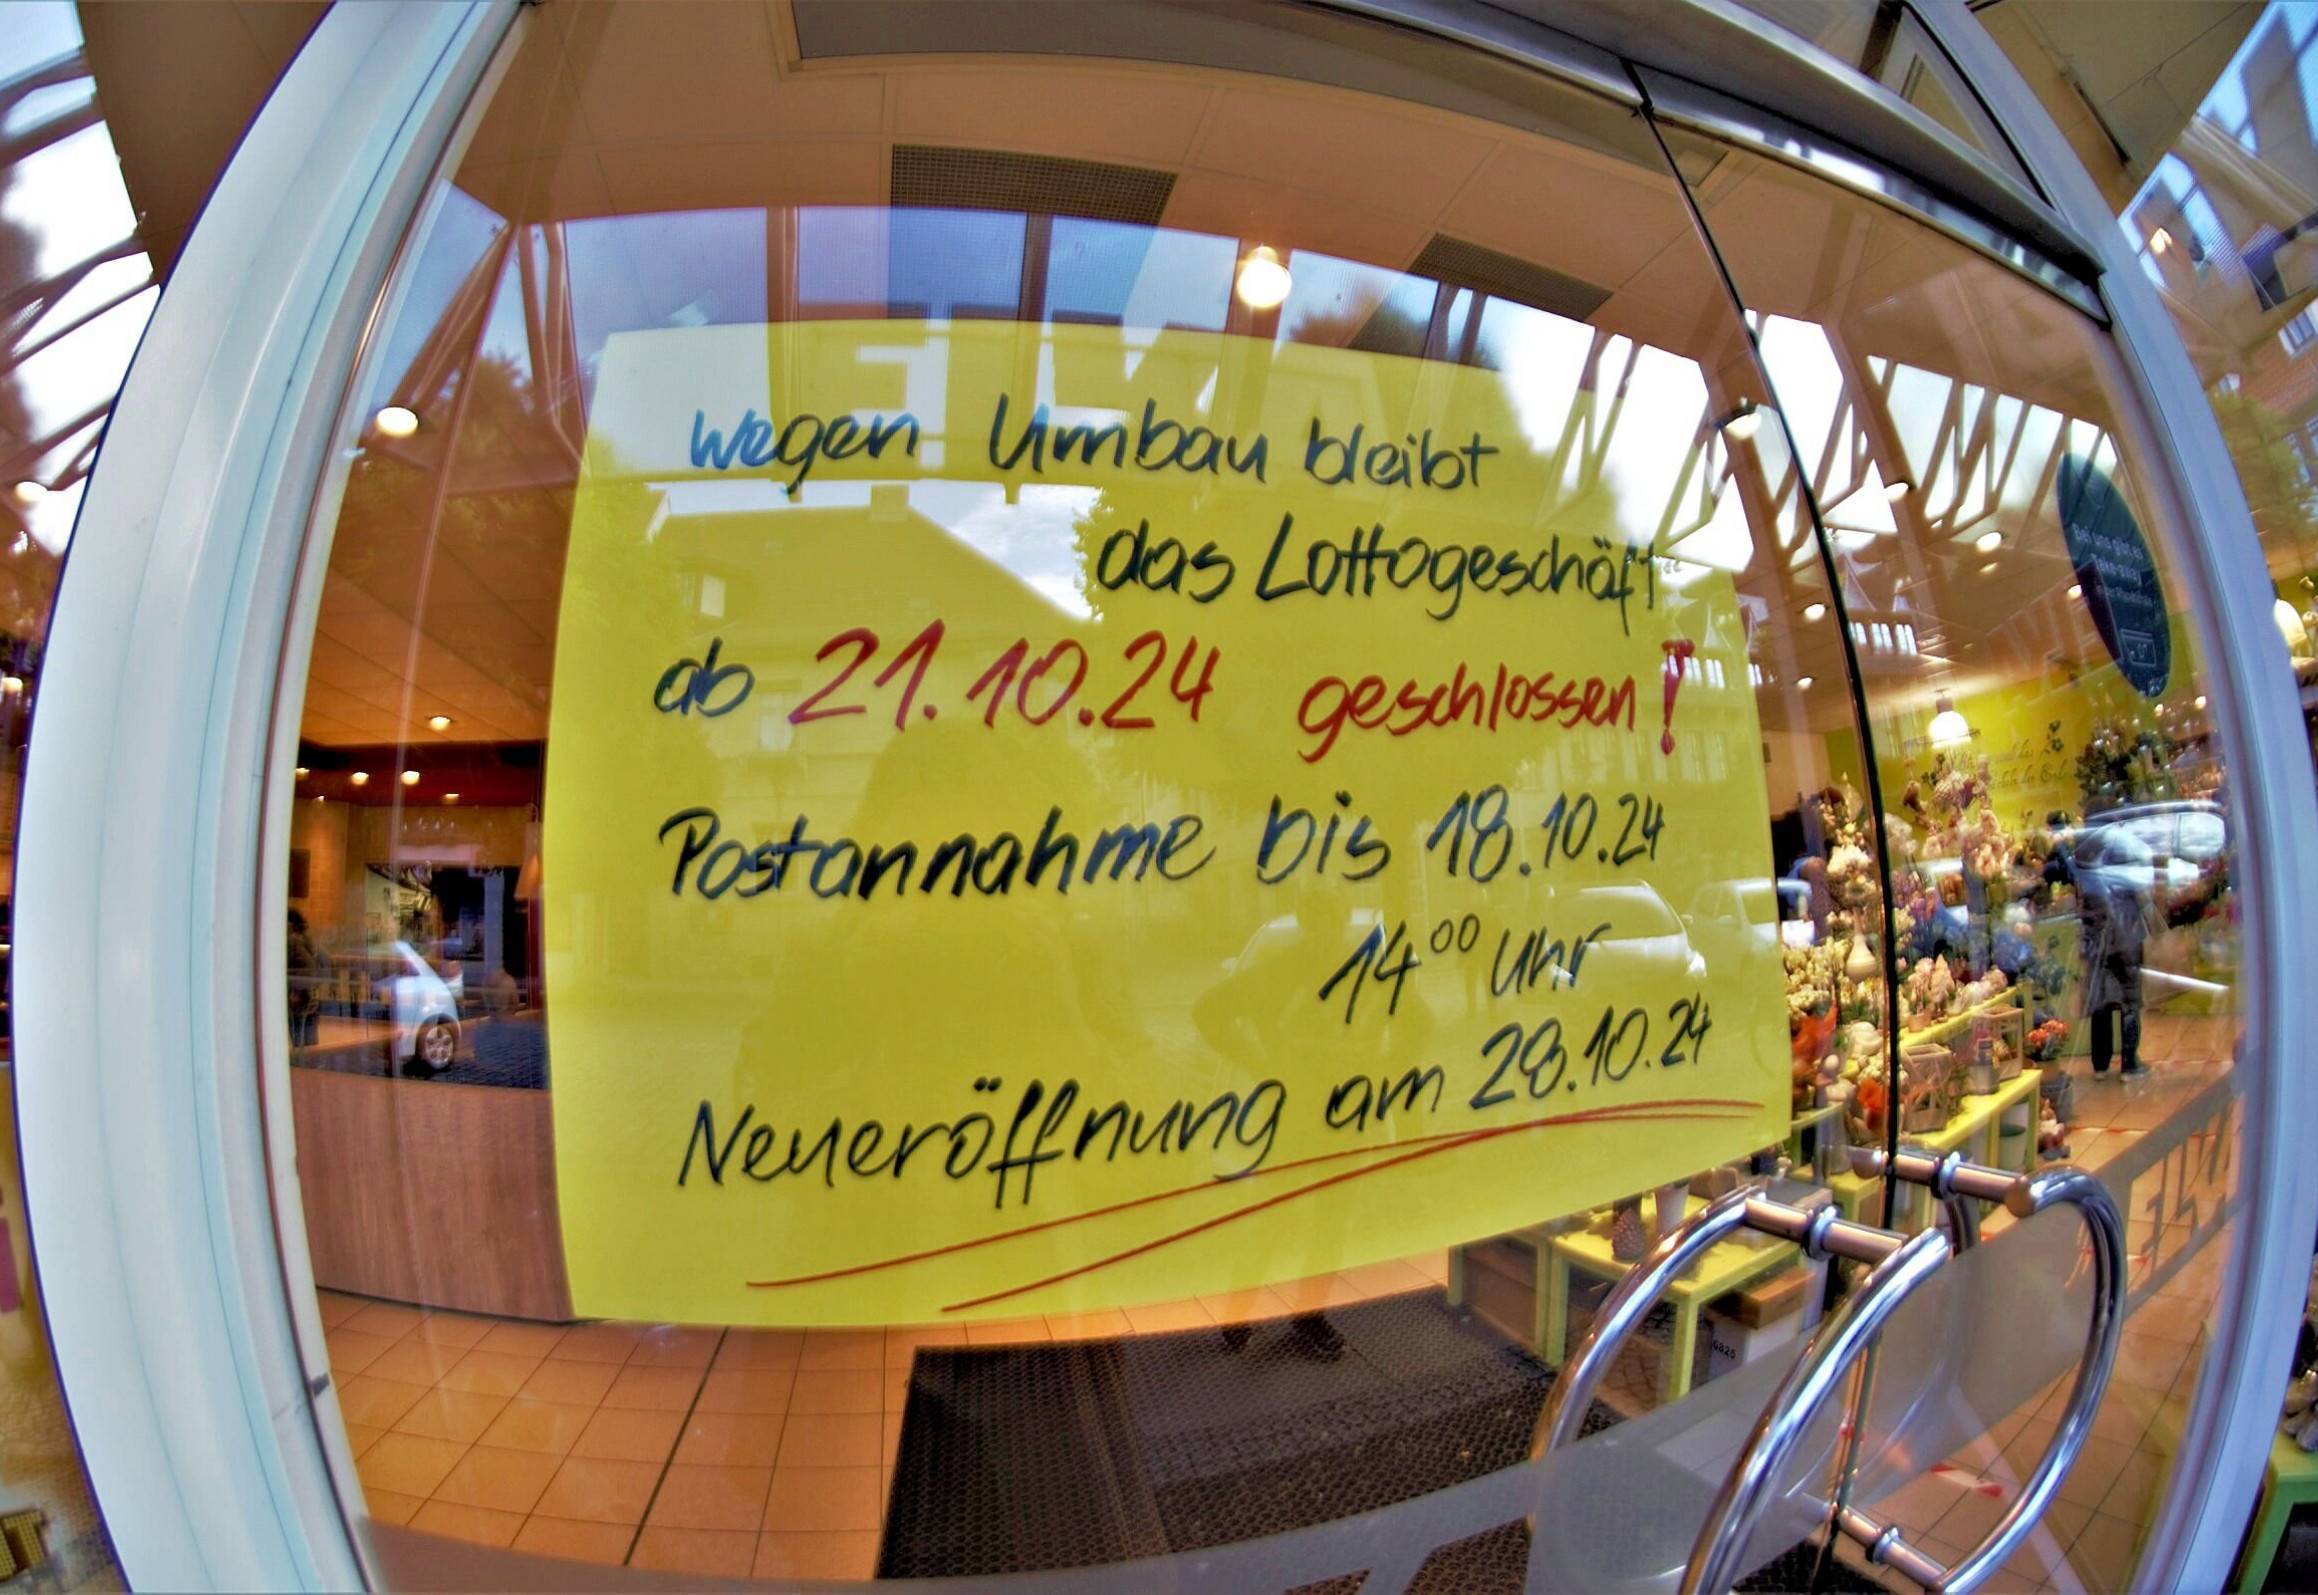 wegen Umbau bleibt
das Lottogeschäft
ab 21.10.24 geschlossen!
Postannahme bis 18.10.24
14⁰⁰ Uhr
Neueröffnung am 28.10.24
Bei uns gibt es
6825